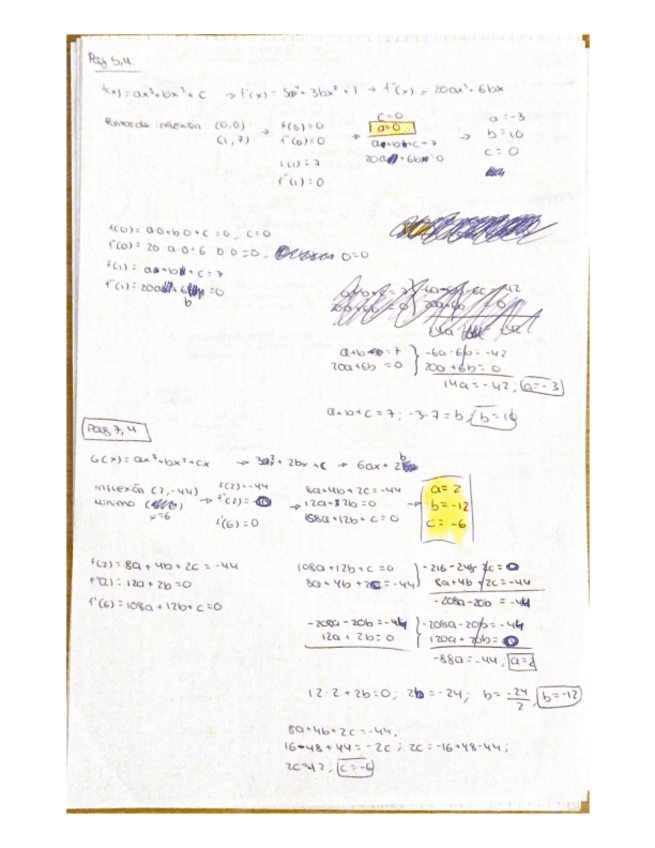 Pag 5,4
f(x) = ax⁵ + bx³ + c → f'(x) = 5ax⁴ + 3bx² + 1 → f''(x) = 20ax³ + 6bx
inflexión (0,0) → f(0)=0
(1,7) f''(0)=0
f(1)=7
f''(1)=0
→ c=0
a=0
a+b+c=7
20a+6b=0
→ a=-3
b=10
c=0
f(0) = a·0+b·0+c=0; c=0
f''(0) = 20·a·0+6·b·0=0; 0=0
f(1) = a+b+c=7
f''(1) = 20a+6b=0
a+b=7 } -6a-6b=-42
20a+6b=0 20a+6b=0
14a=-42; a=-3
a+b+c=7; -3-7=b; b=10
Pag 7,4
G(x) = ax³+bx²+cx → 3ax²+2bx+c → 6ax+2b
inflexión (2,-44) → f(2)=-44
x=6 f''(2)=0
f'(6)=0
→ 8a+4b+2c=-44
12a+2b=0
108a+12b+c=0
→ a=2
b=-12
c=-6
f(2) = 8a+4b+2c=-44
f''(2) = 12a+2b=0
f'(6) = 108a+12b+c=0
108a+12b+c=0 } -216-24b-2c=0
8a+4b+2c=-44 8a+4b+2c=-44
-208a-20b=-44
-208a-20b=-44 } -208a-20b=-44
12a+2b=0 120a+20b=0
-88a=-44; a=2
12·2+2b=0; 2b=-24; b=-24/2; b=-12
8a+4b+2c=-44;
16-48+44=-2c; 2c=-16+48-44;
2c=12; c=-6